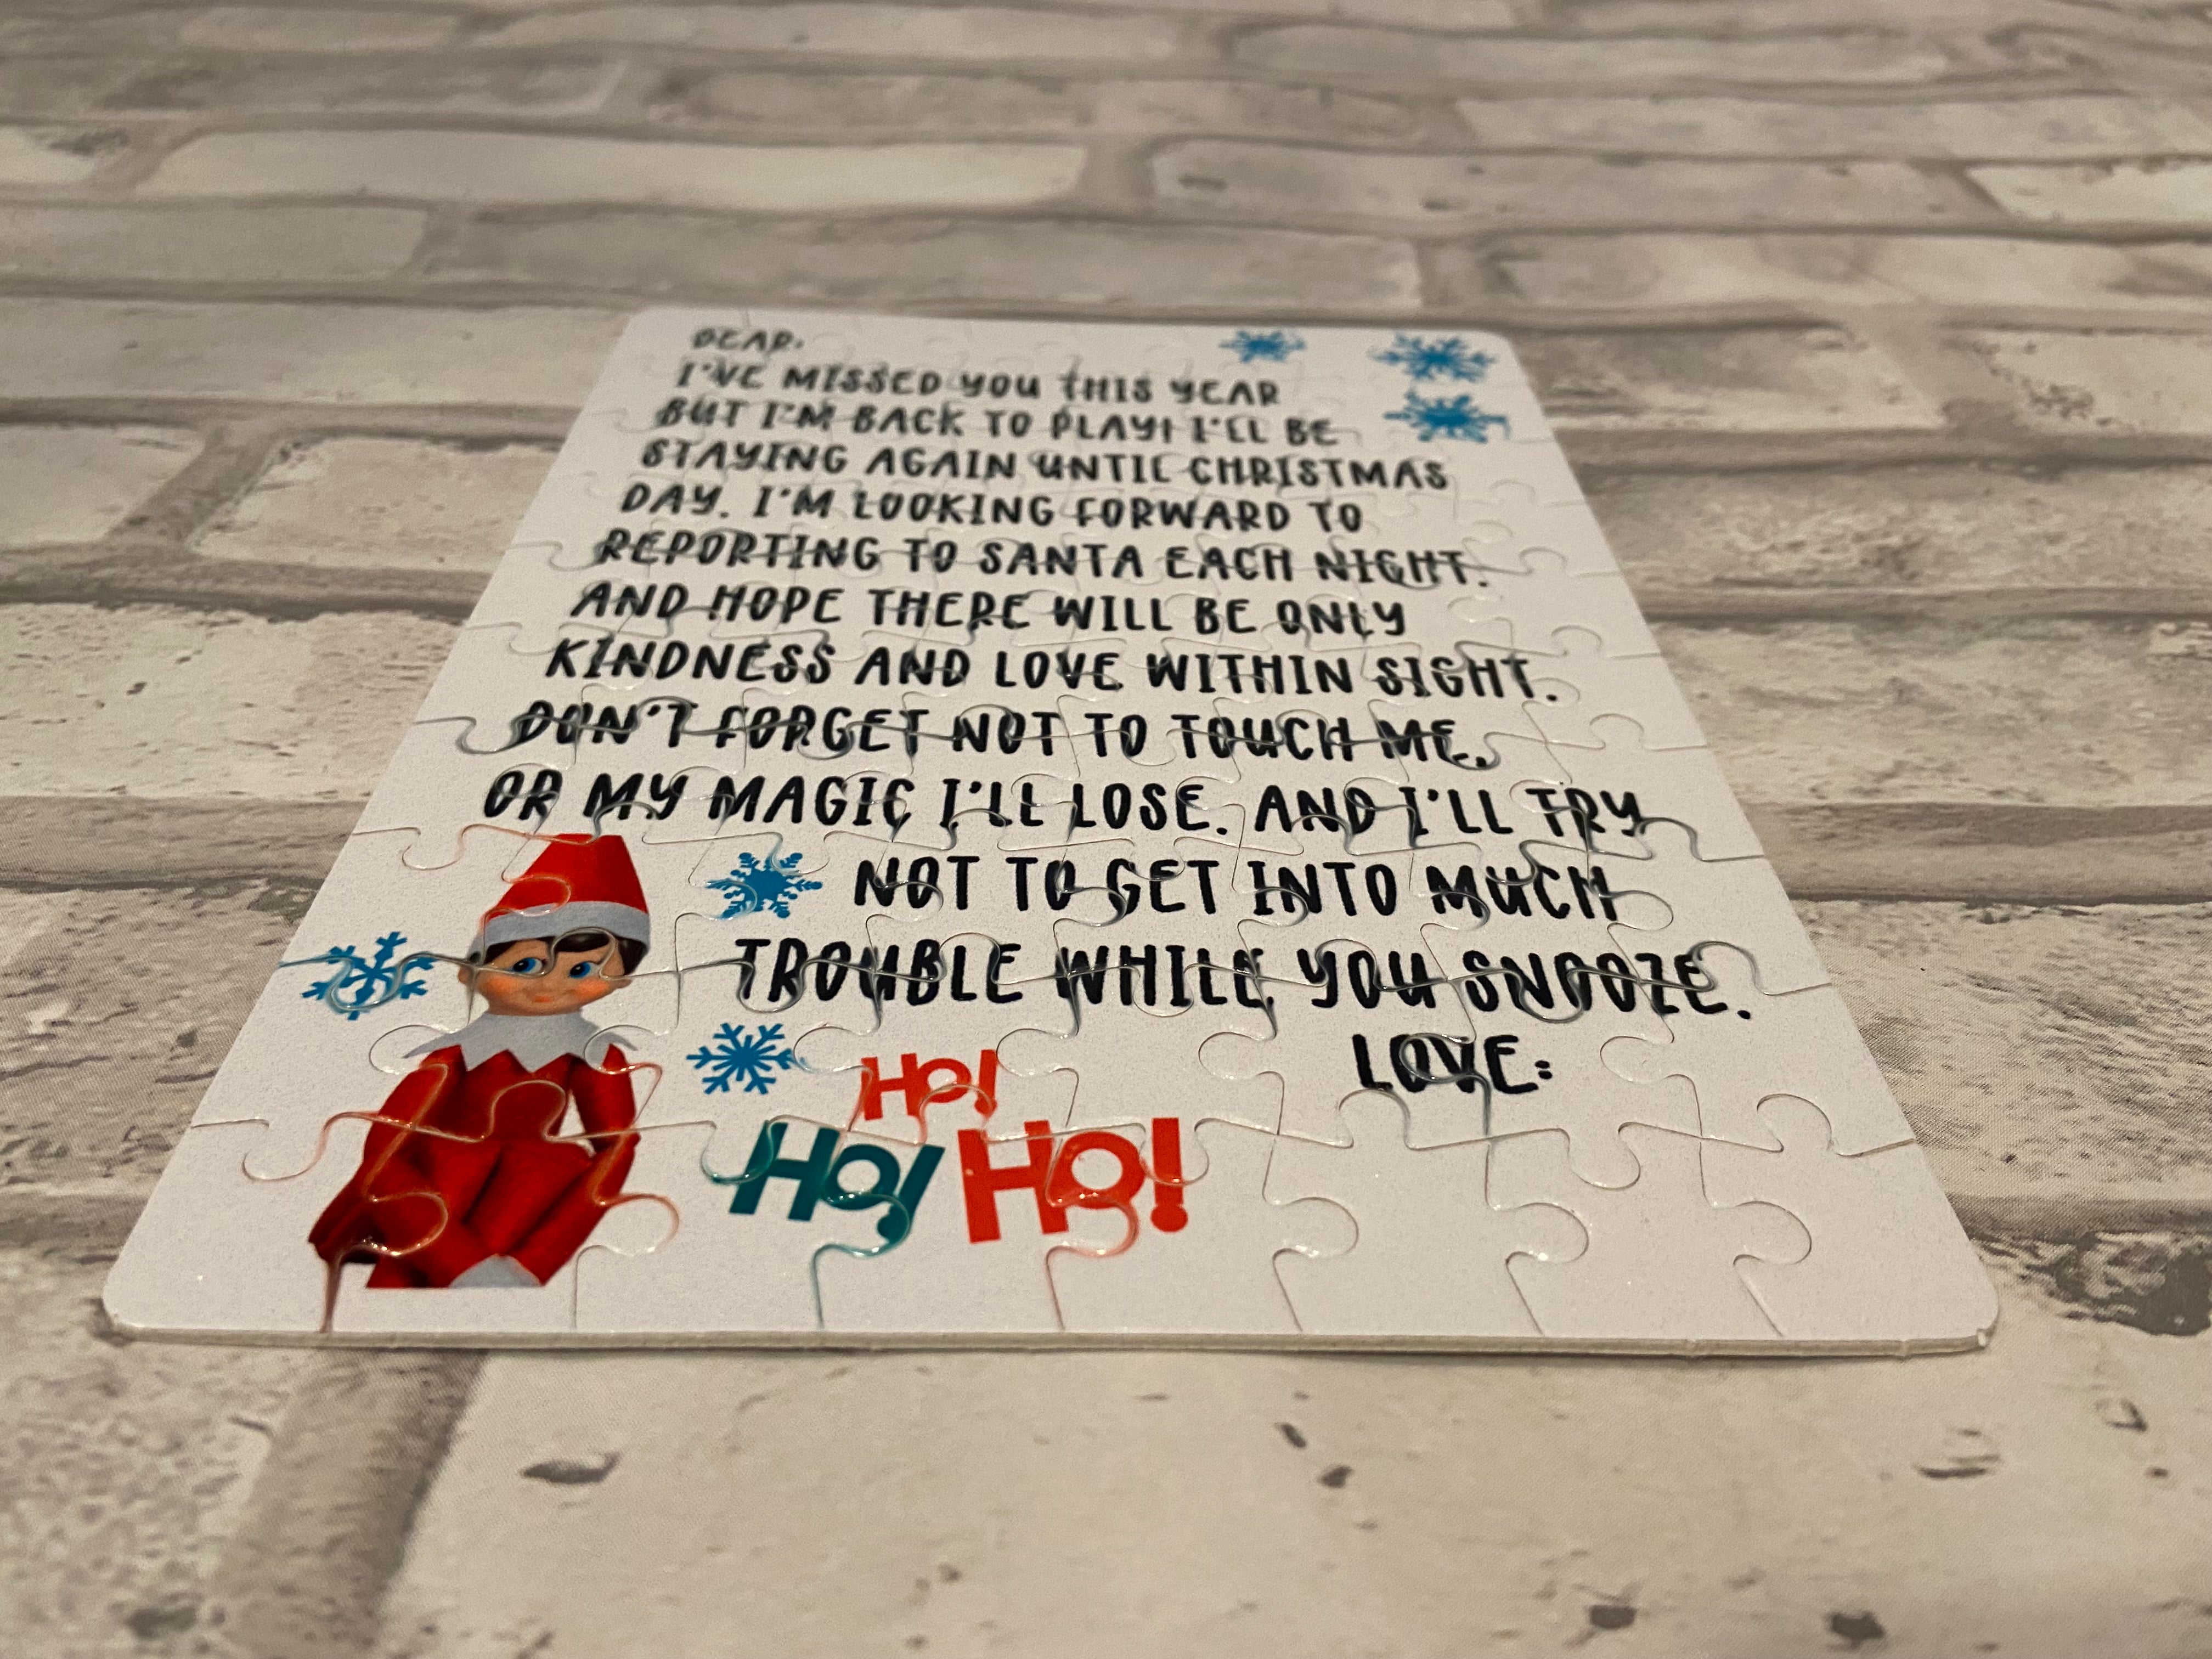 DEAR:
I'VE MISSED YOU THIS YEAR
BUT I'M BACK TO PLAY! I'LL BE
STAYING AGAIN UNTIL CHRISTMAS
DAY. I'M LOOKING FORWARD TO
REPORTING TO SANTA EACH NIGHT.
AND HOPE THERE WILL BE ONLY
KINDNESS AND LOVE WITHIN SIGHT.
DON'T FORGET NOT TO TOUCH ME.
OR MY MAGIC I'LL LOSE. AND I'LL TRY
NOT TO GET INTO MUCH
TROUBLE WHILE YOU SNOOZE.
LOVE:
HO!
HO! HO!